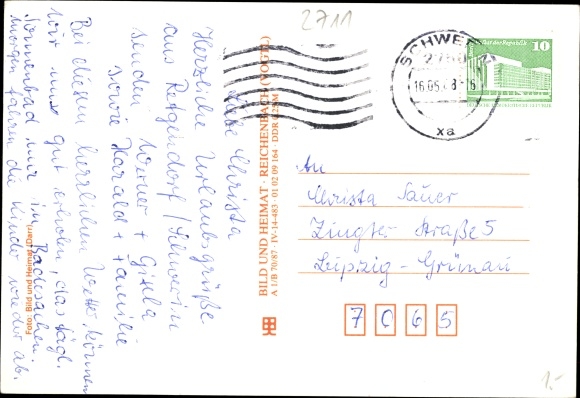 2711
SCHWERIN
2758
16.05.
xa
Palast der Republik 10
Liebe Christa
Herzliche Urlaubsgrüße
aus Retgendorf / Schwerin
senden Werner + Gisela
sowie Harald + Familie
Bei diesem herrlichen Wetter können
wir uns gut erholen, das tägl.
Sonnenbad nur im Badeanzug.
Morgen fahren die Kinder wieder ab.
Foto: Bild und Heimat
BILD UND HEIMAT · REICHENBACH (VOGTL)
A 1/B 70/87 · IV-14-483 · 01 02 09 164 · DDR
An
Christa Sauer
Zingster Straße 5
Leipzig-Grünau
7065
1,-